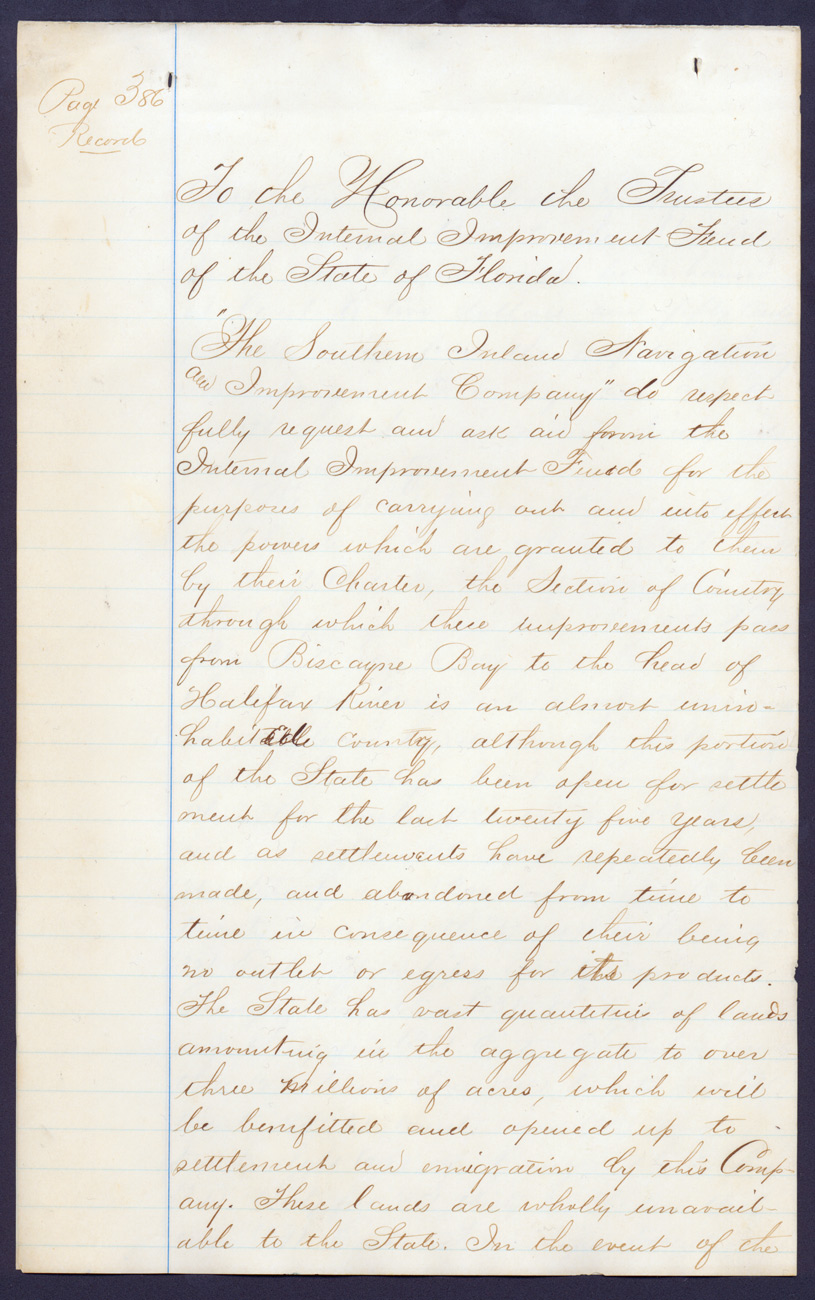 Page 386
Record
To the Honorable the Trustees
of the Internal Improvement Fund
of the State of Florida.
"The Southern Inland Navigation
and Improvement Company" do respect
fully request and ask aid from the
Internal Improvement Fund for the
purposes of carrying out and into effect
the powers which are granted to them
by their Charter, the Section of Country
through which these improvements pass
from Biscayne Bay to the head of
Halifax River is an almost unin-
habitable country, although this portion
of the State has been open for settle
ment for the last twenty five years,
and as settlements have repeatedly been
made, and abandoned from time to
time in consequence of their being
no outlet or egress for its products.
The State has vast quantities of lands
amounting in the aggregate to over
three millions of acres, which will
be benfitted and opened up to
settlement and emigration by this Comp-
any. These lands are wholly unavail-
able to the State. In the event of the